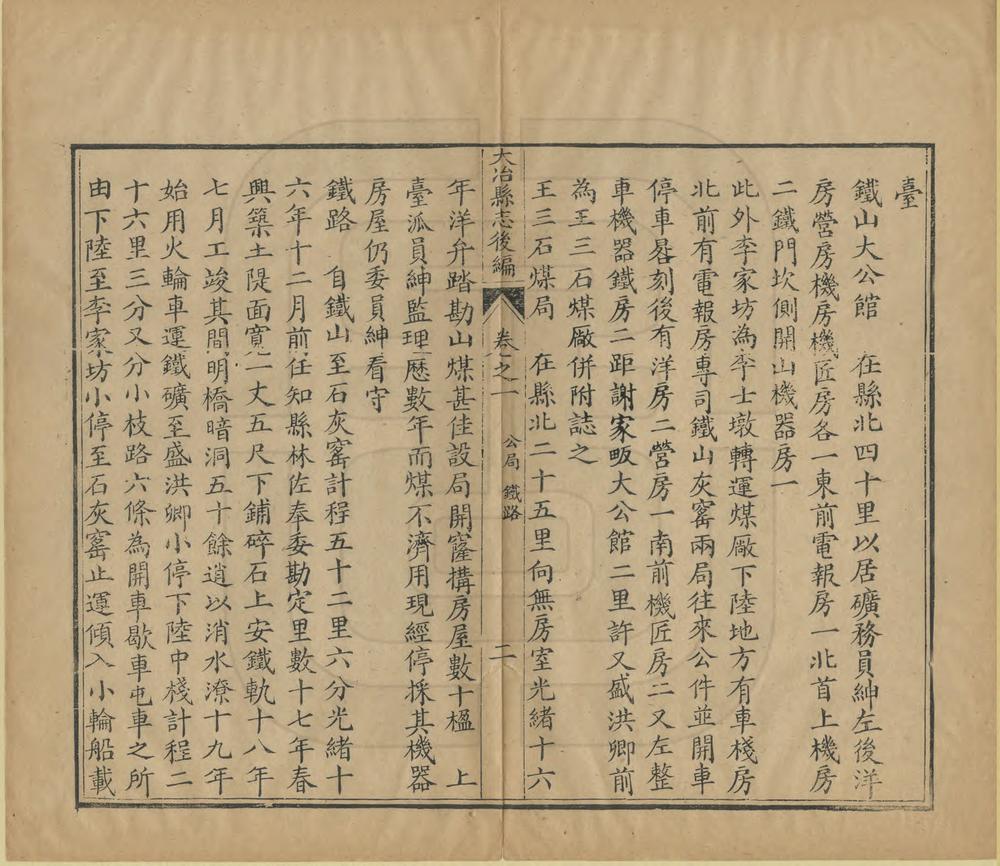 臺
鐵山大公館　在縣北四十里以居礦務員紳左後洋
房營房機房機匠房各一東前電報房一北首上機房
二鐵門坎側開山機器房一
此外李家坊為李士墩轉運煤廠下陸地方有車棧房
北前有電報房專司鐵山灰窰兩局往來公件並開車
停車晷刻後有洋房二營房一南前機匠房二又左整
車機器鐵房二距謝家畈大公館二里許又盛洪卿前
為王三石煤廠併附誌之
王三石煤局　在縣北二十五里向無房室光緒十六
大冶縣志後編
卷之一
公局　鐵路
二
年洋弁踏勘山煤甚佳設局開窿搆房屋數十楹　上
臺泒員紳監理歷數年而煤不濟用現經停採其機器
房屋仍委員紳看守
鐵路　自鐵山至石灰窰計程五十二里六分光緒十
六年十二月前任知縣林佐奉委勘定里數十七年春
興築土隄面寬一丈五尺下鋪碎石上安鐵軌十八年
七月工竣其間明橋暗洞五十餘道以消水潦十九年
始用火輪車運鐵礦至盛洪卿小停下陸中棧計程二
十六里三分又分小枝路六條為開車歇車屯車之所
由下陸至李家坊小停至石灰窰止運傾入小輪船載